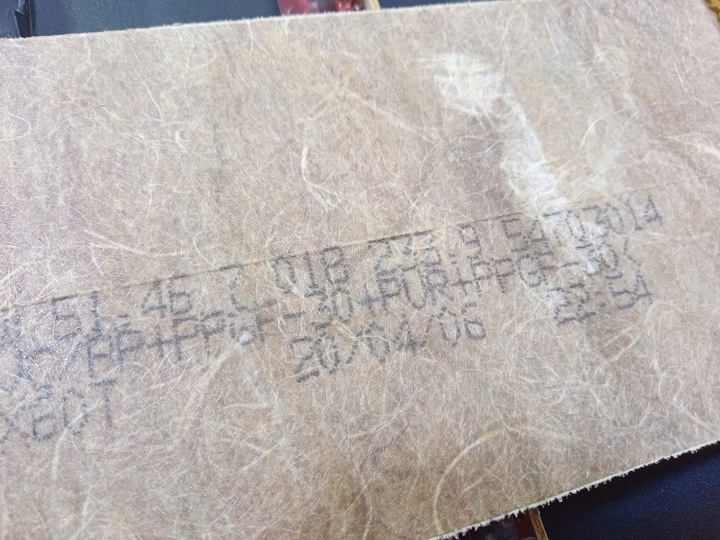 51.46 7 018 233.9 54703014
PP+PPGF-30+PUR+PPGF-30
20/04/06 22:54
X60T